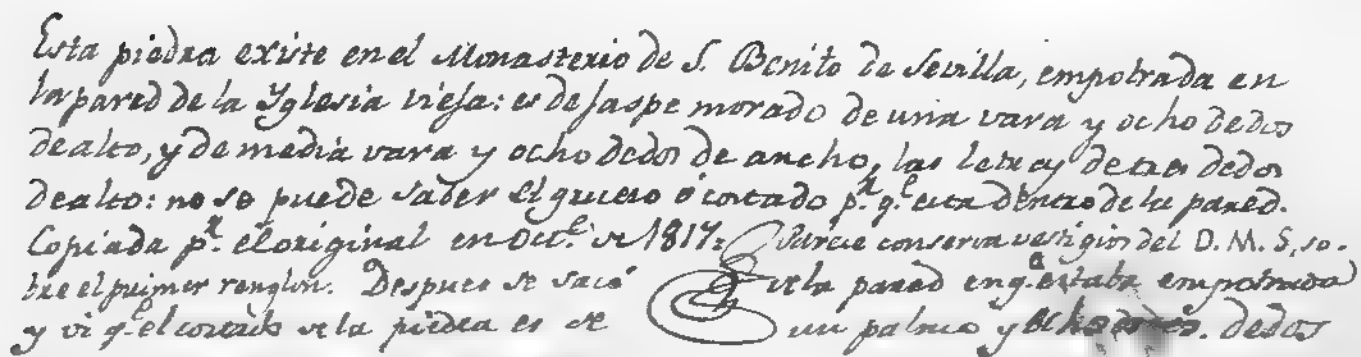 Esta piedra existe en el Monasterio de S. Benito de Sevilla, empotrada en
la pared de la Yglesia vieja: es de jaspe morado de una vara y ocho dedos
de alto, y de media vara y ocho dedos de ancho, las letras de tres dedos
de alto: no se puede saber el grueso ó costado p.r q.e esta dentro de la pared.
Copiada p.r el original en Oct.e de 1817: Parece conserva vestigios del D. M. S, so-
bre el primer renglon. Despues se sacó de la pared en q.e estaba empotrada
y vi q.e el costado de la piedra es de un palmo y dedos